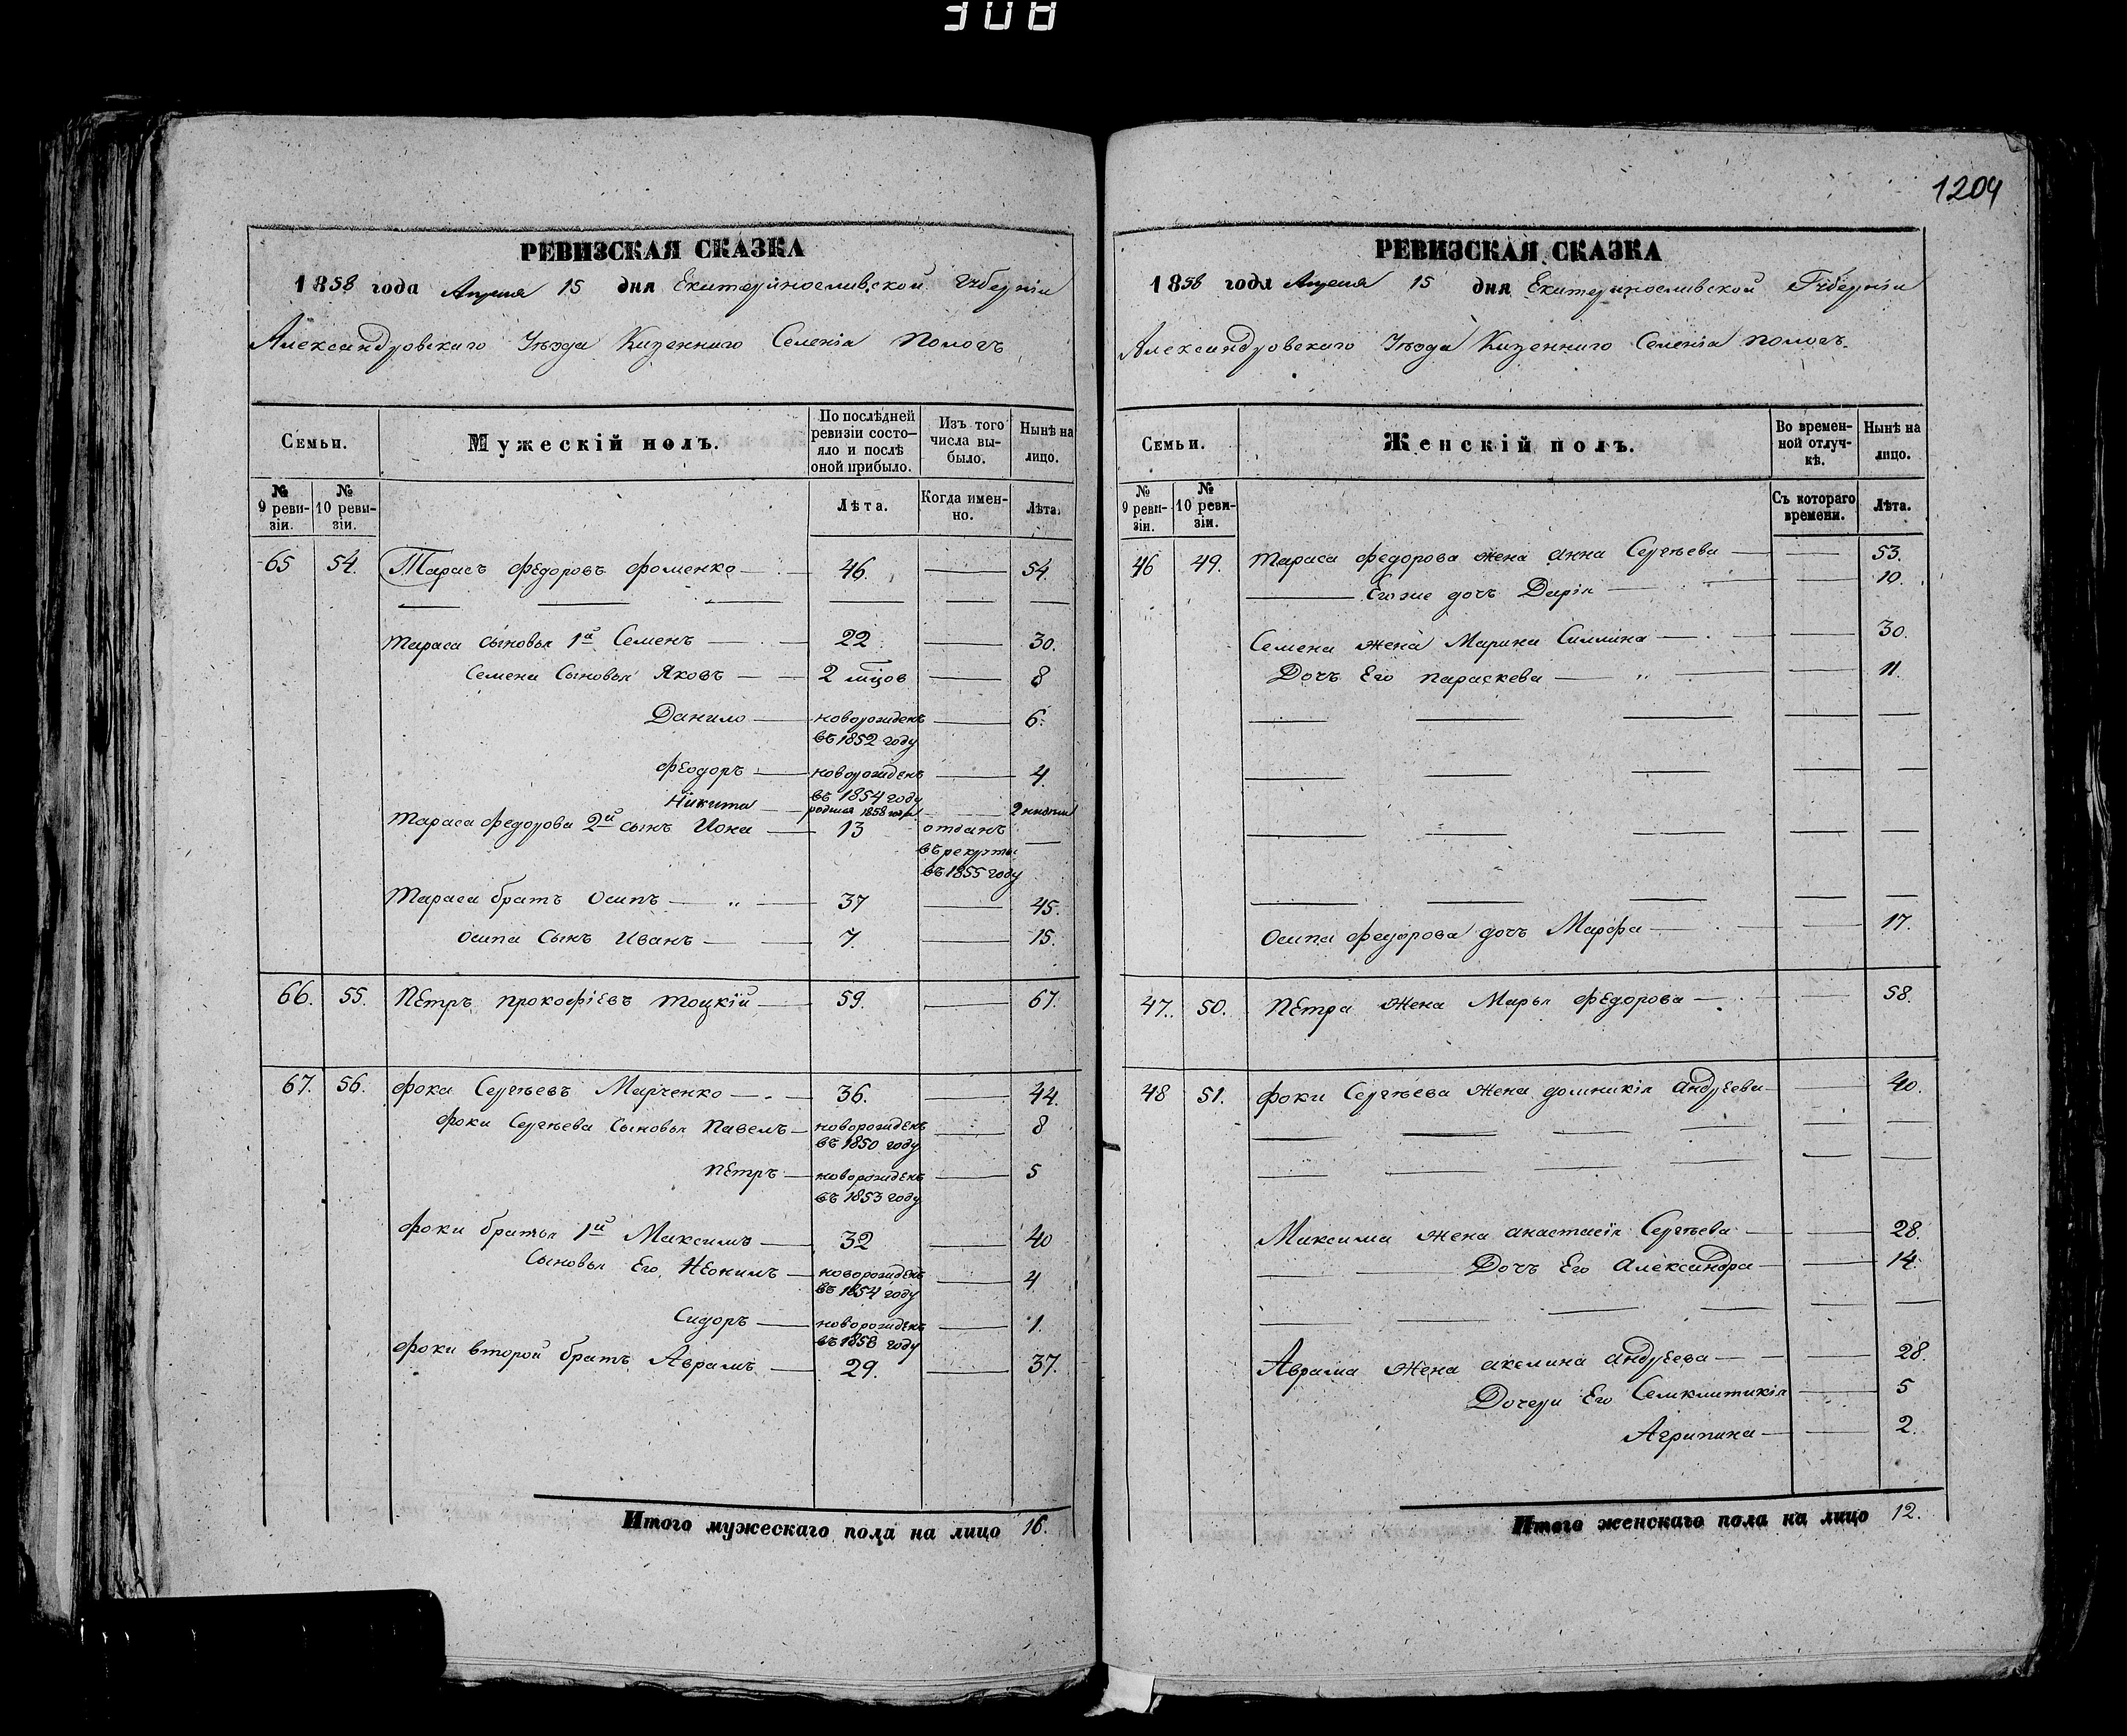 308
РЕВИЗСКАЯ СКАЗКА
1858 года Апреля 15 дня Екатеринославской Губерніи
Александровскаго Уѣзда Казеннаго Селенія Пологъ
Семьи.
Мужескій полъ.
По послѣдней ревизіи состо-
яло и послѣ
оной прибыло.
Изъ того
числа вы-
было.
Нынѣ на
лицо.
№
9 реви-
зіи.
№
10 реви-
зіи.
Лѣта.
Когда имен-
но.
Лѣта.
65 54. Тарасъ Федоровъ Фоменко 46. 54.
Тараса сыновья 1й Семенъ 22 30.
Семена Сыновья Яковъ 2 мцов 8
Данило новорожденъ 6.
въ 1852 году
Феодоръ новорожденъ 4.
въ 1854 году
Никита родился 1858 года 2 недели
Тараса Федорова 2й сынъ Иона 13 отданъ
въ рекруты
въ 1855 году
Тараса братъ Осипъ 37 45.
Осипа Сынъ Иванъ 7. 15.
66. 55. Петръ Прокофіевъ Тоцкій 59. 67.
67. 56. Фока Сергѣевъ Марченко 36. 44.
Фоки Сергѣева Сыновья Павелъ новорожденъ 8
въ 1850 году
Петръ новорожденъ 5
въ 1853 году
Фоки братья 1й Максимъ 32 40
Сыновья Его новорожденъ 4
въ 1854 году
Сидоръ новорожденъ 1.
въ 1858 году
Фоки второй братъ Аврамъ 29. 37.
Итого мужескаго пола на лицо 16.
1204
РЕВИЗСКАЯ СКАЗКА
1858 года Апреля 15 дня Екатеринославской Губерніи
Александровскаго Уѣзда Казеннаго Селенія Пологъ.
Семьи.
Женскій полъ.
Во времен-
ной отлуч-
кѣ.
Нынѣ на
лицо.
№
9 реви-
зіи.
№
10 реви-
зіи.
Съ котораго
времени.
Лѣта.
46 49. Тараса Федорова жена Анна Сергѣева 53.
Его же дочь Дарія 10.
Семена жена Марина 30.
Дочь Его Параскева 11.
Осипа Федорова дочь Марфа 17.
47. 50. Петра жена Марья Федорова 58.
48 51. Фоки Сергѣева жена Домникія Андреева 40.
Максима жена Анастасія Сергѣева 28.
Дочь Его Александра 14.
Аврама жена Акелина Андреева 28.
Дочери Его 5
Агрипина 2.
Итого женскаго пола на лицо 12.